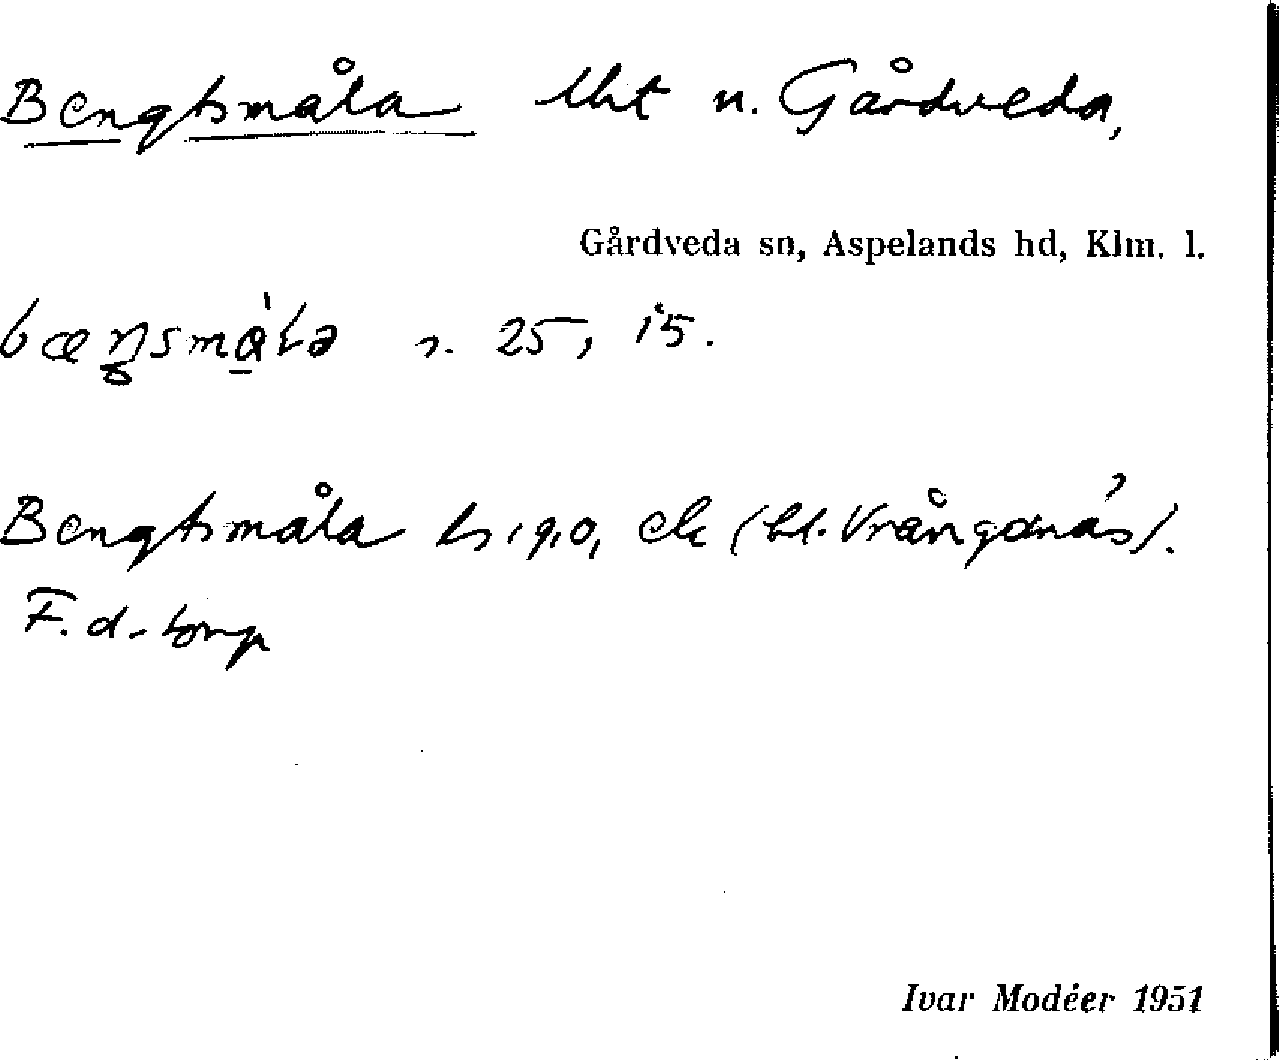 Bengtsmåla lht u. Gårdveda,
Gårdveda sn, Aspelands hd, Klm. l.
25, 15.
Bengtsmåla (bl. Vrångenäs).
F. d. torp
Ivar Modéer 1951